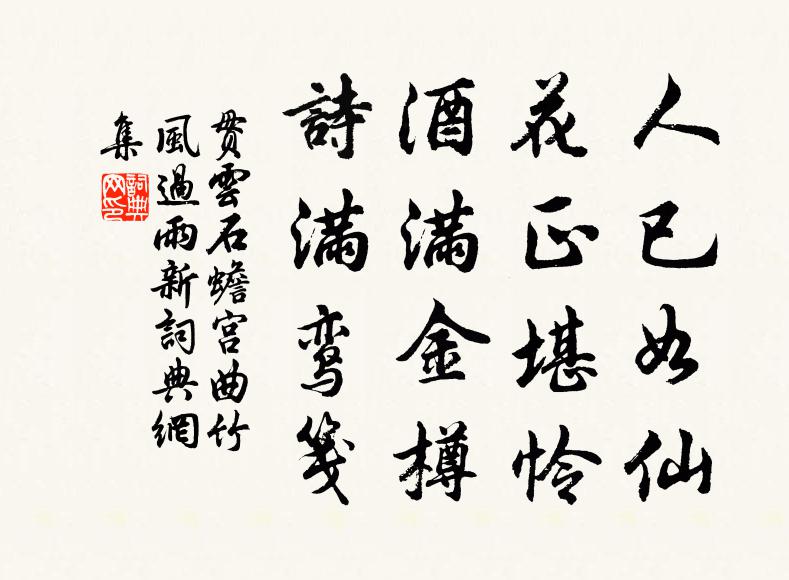 人已如仙
花正堪怜
酒满金樽
詩满鸾笺
贯雲石蟾宫曲竹
風過雨新詞典網
集
詞典网印